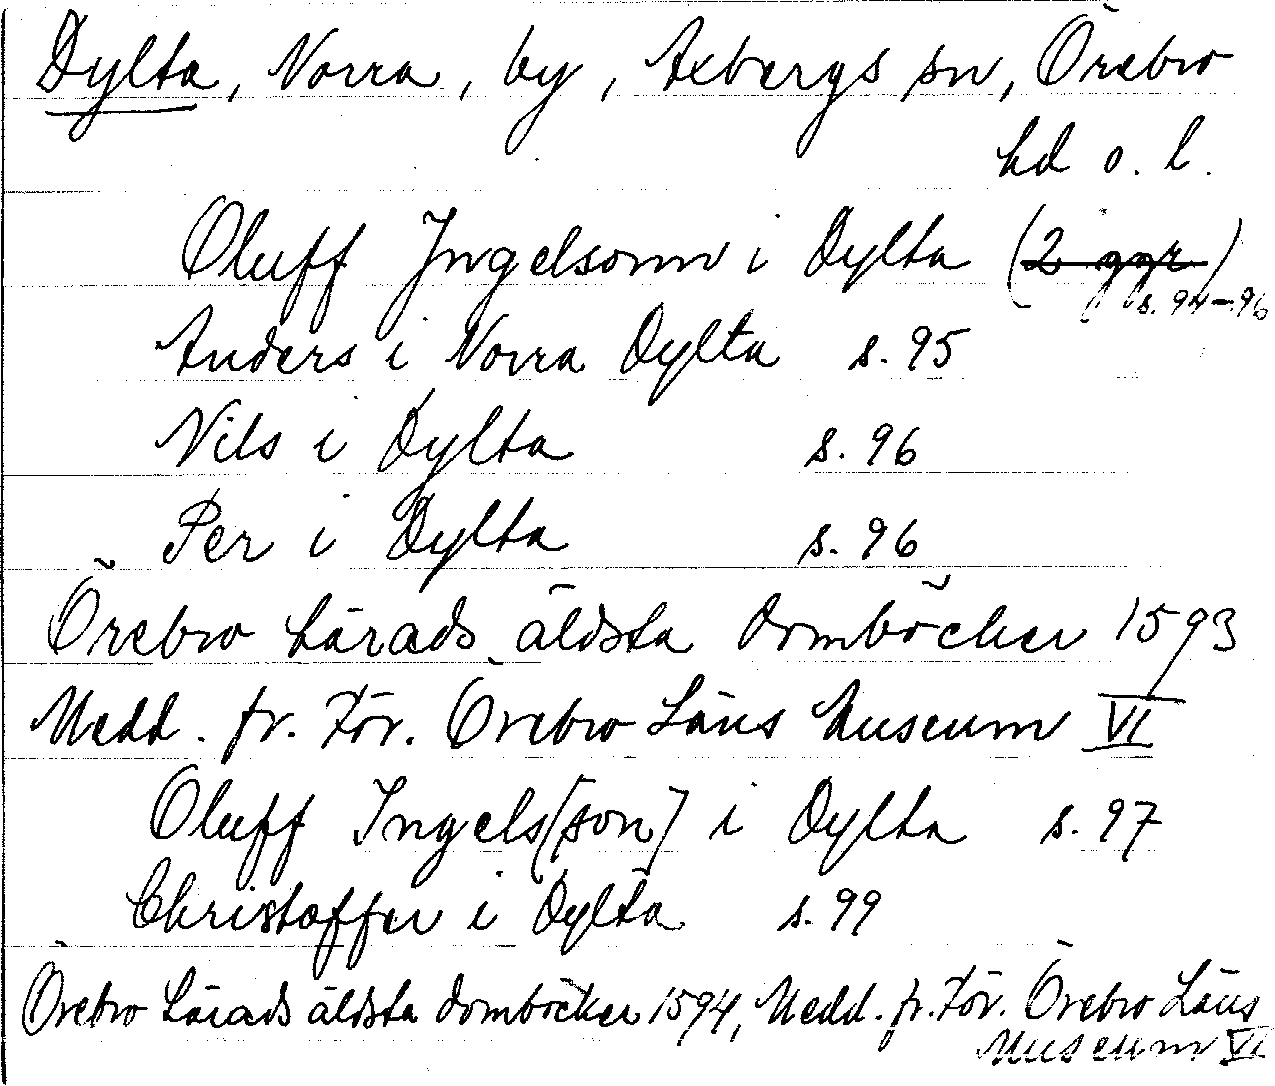 Dylta, Norra, by, Axbergs sn, Örebro
hd o. l.
Oluff Jngelsonn i Dylta (2 ggr)
s. 94-96
Anders i Norra Dylta s. 95
Nils i Dylta s. 96
Per i Dylta s. 96
Örebro härads äldsta domböcker 1593
Medd. fr. För. Örebro Läns Museum VI
Oluff Ingels[son] i Dylta s. 97
Christoffer i Dylta s. 99
Örebro härads äldsta domböcker 1594, Medd. fr. För. Örebro Läns
Museum VI